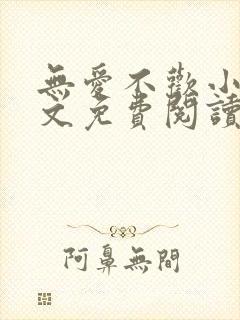 無愛不歡小
文免費閱讀
阿鼻無間